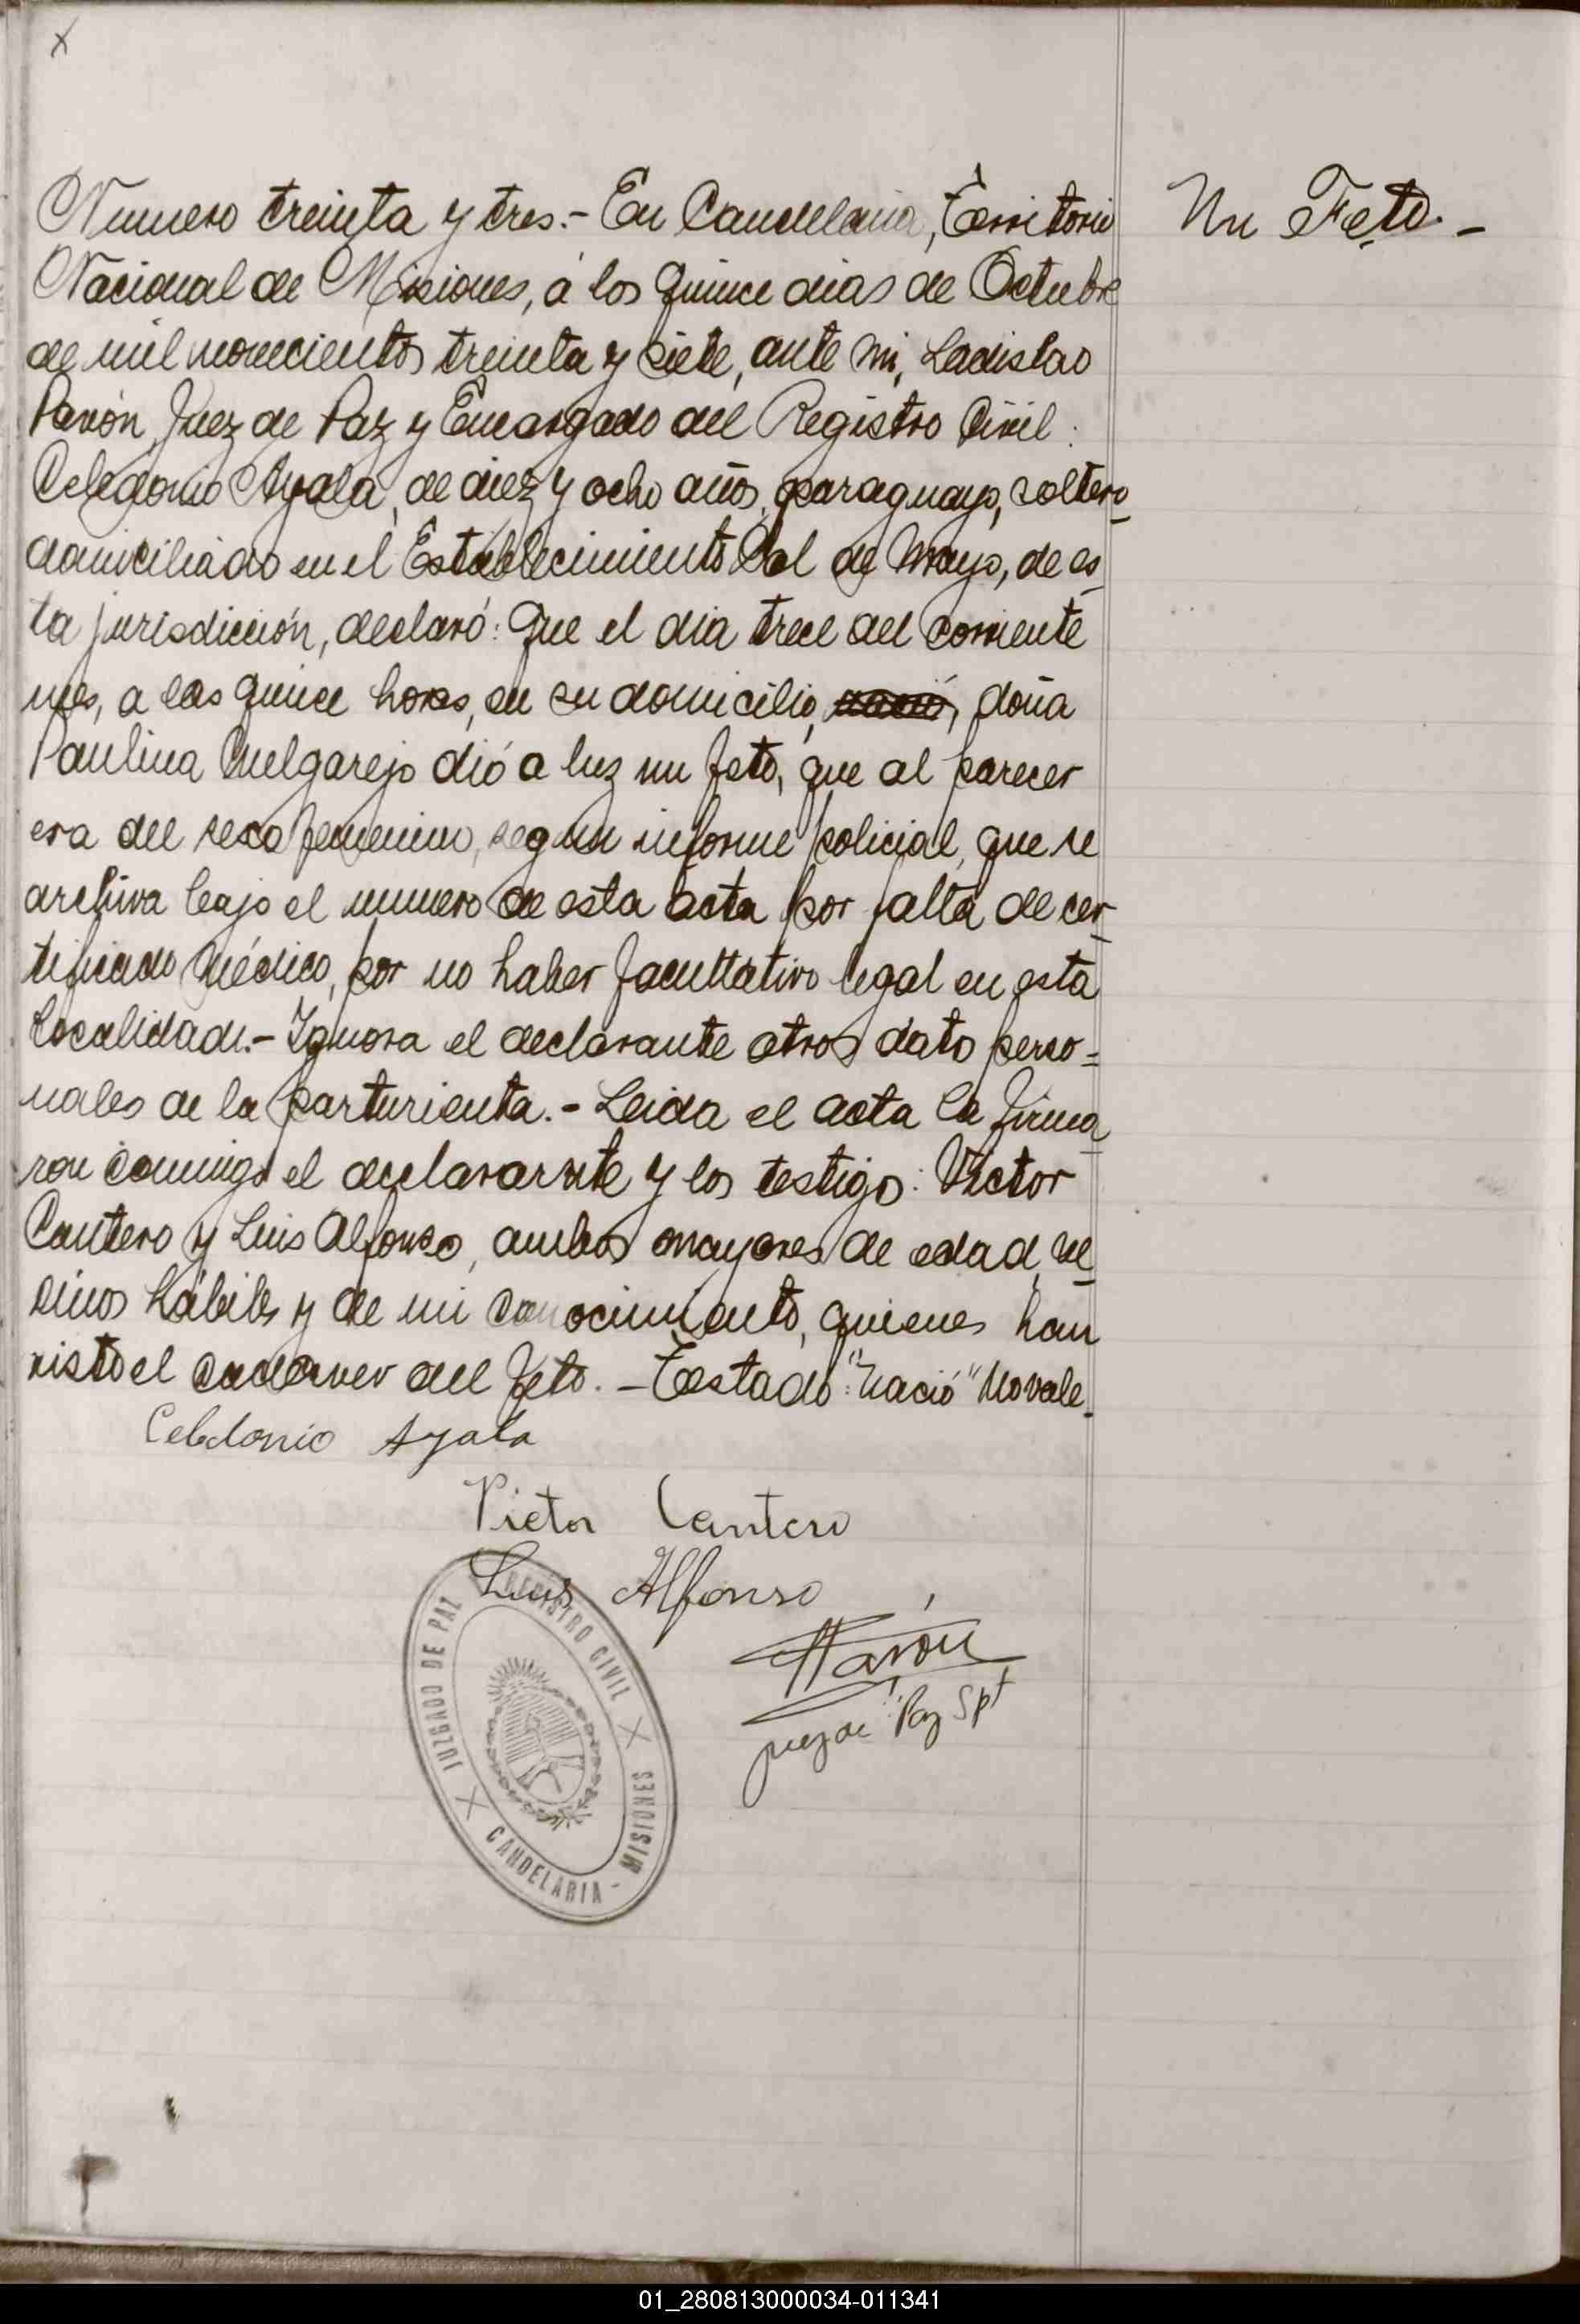 X
Numero treinta y tres.- En Candelaria, Territorio
Un Feto.-
Nacional de Misiones, á los quince dias de Octubre
de mil novecientos treinta y siete, ante mi, Ladislao
Pavón, Juez de Paz y Encargado del Registro Civil:
Celedonio Ayala, de diez y ocho años, paraguayo, soltero
domiciliado en el Establecimiento Sol de Mayo, de es-
ta jurisdicción, declaró: Que el dia trece del corriente
mes, a las quince horas, en su domicilio, nació, doña
Paulina Melgarejo dió a luz un feto, que al parecer
era del sexo femenino, segun informe policial, que se
archiva bajo el numero de esta acta por falta de cer-
tificado médico, por no haber facultativo legal en esta
Localidad.- Ignora el declarante otros dato perso=
nales de la parturienta.- Leida el acta la firma-
ron conmigo el declarante y los testigo: Victor
Cantero y Luis Alfonso, ambos mayores de edad, ve-
cinos hábiles y de mi conocimiento, quienes han
visto el cadaver del feto.- Testado: "nació" No vale.
Celedonio Ayala
Victor Cantero
Luis Alfonso
Pavón
juez de Paz Spt
JUZGADO DE PAZ REGISTRO CIVIL
CANDELARIA - MISIONES
01_280813000034-011341